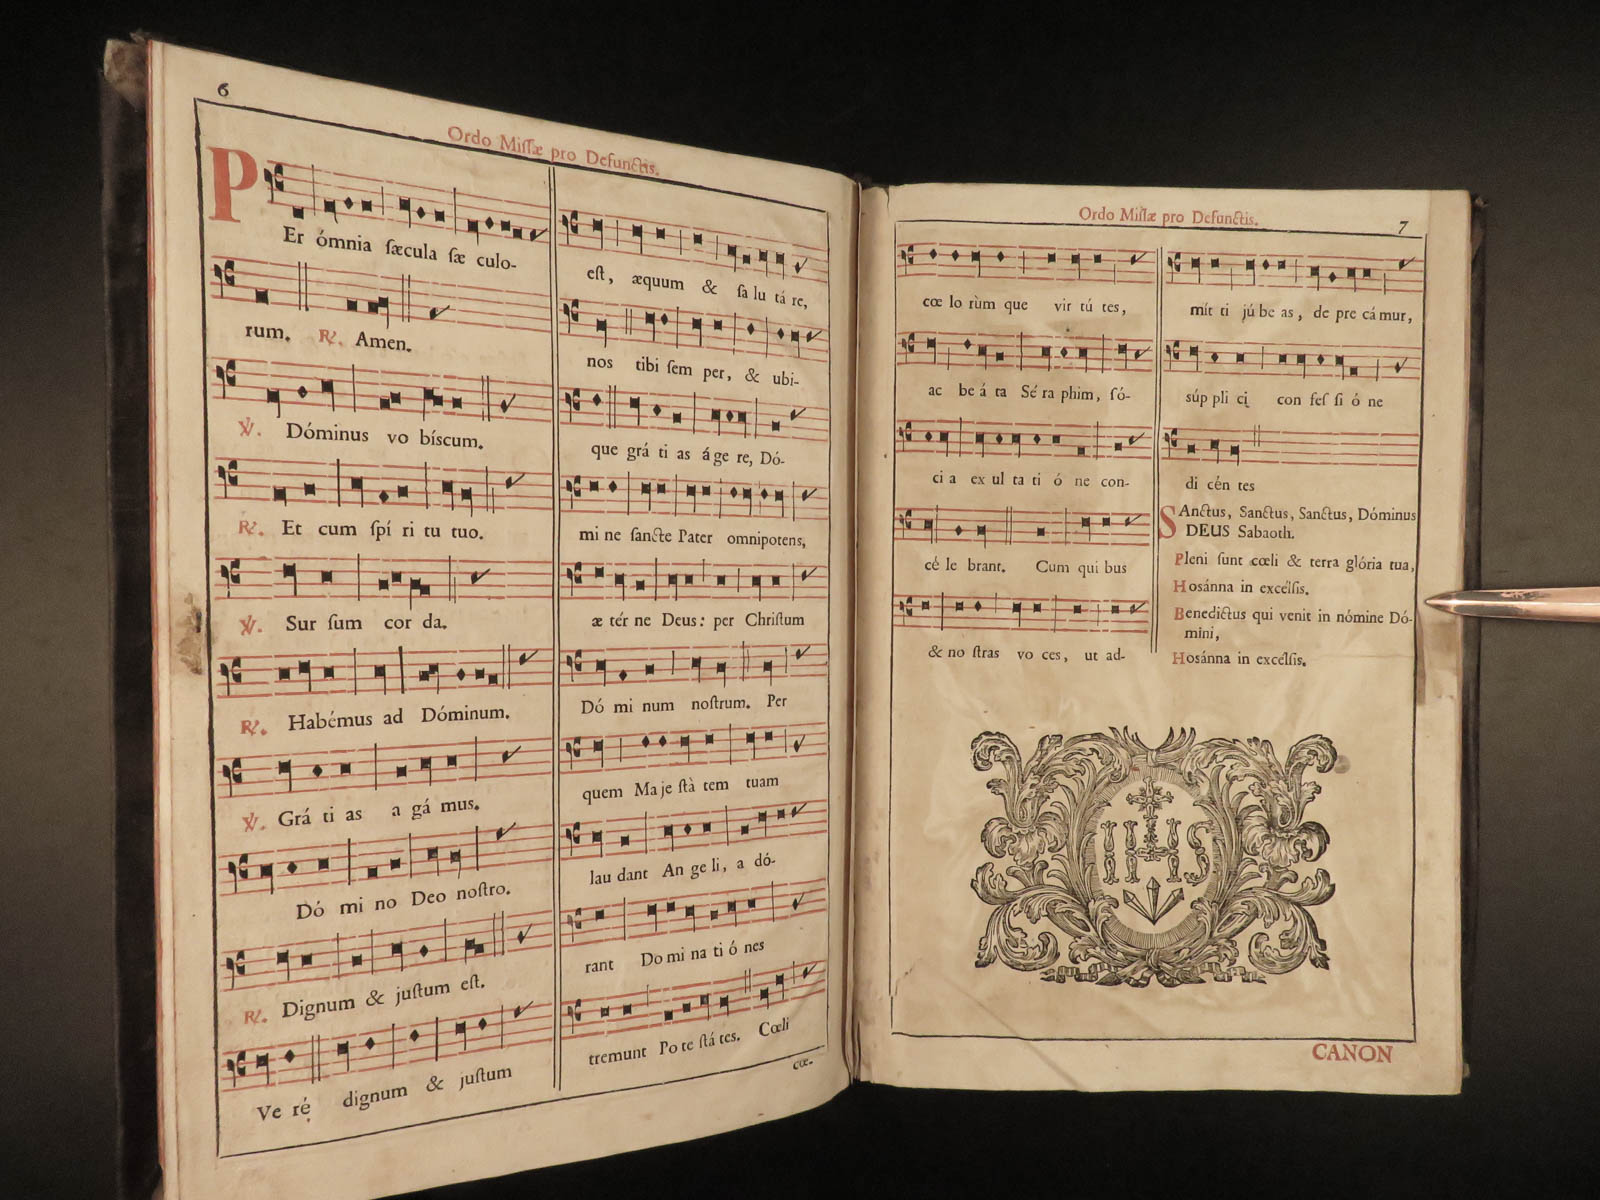 6
Ordo Miſſæ pro Defunctis.
PEr ómnia ſæcula ſæ culo-
rum. ℟. Amen.
℣. Dóminus vo bíscum.
℟. Et cum ſpí ri tu tuo.
℣. Sur ſum cor da.
℟. Habémus ad Dóminum.
℣. Grá ti as a gá mus.
Dó mi no Deo noſtro.
℟. Dignum & juſtum eſt.
Ve rę́ dignum & juſtum
eſt, æquum & ſa lu tá re,
nos tibi ſem per, & ubi-
que grá ti as áge re, Dó-
mi ne ſancte Pater omnipotens,
æ tér ne Deus: per Chriſtum
Dó mi num noſtrum. Per
quem Ma je ſtà tem tuam
lau dant An ge li, a dó-
rant Do mi na ti ó nes
tremunt Po te ſtá tes. Cœli
cœ-
Ordo Miſſæ pro Defunctis.
7
cœ lo rùm que vir tú tes,
ac be á ta Sé ra phim, ſó-
ci a ex ul ta ti ó ne con-
cé le brant. Cum qui bus
& no ſtras vo ces, ut ad-
mít ti jú be as, de pre cá mur,
súp pli cį con feſ ſi ó ne
di cén tes
SAnctus, Sanctus, Sanctus, Dóminus
DEUS Sabaoth.
Pleni ſunt cœli & terra glória tua,
Hosánna in excélſis.
Benedíctus qui venit in nómine Dó-
mini,
Hosánna in excélſis.
IHS
CANON